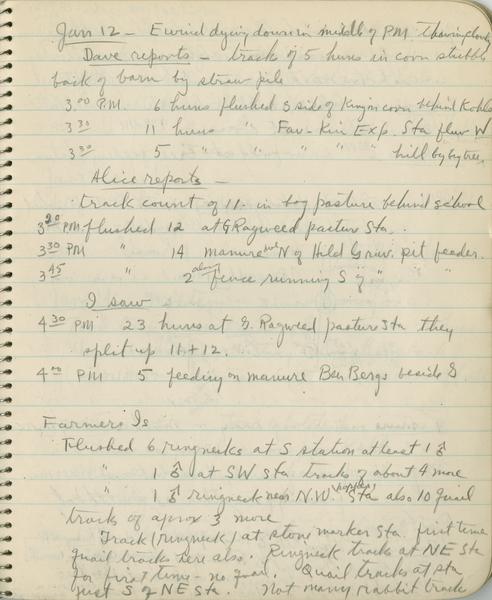 Jan 12 - E wind dying down in middle of PM Thawing
Dave reports - track of 5 huns in corn stubble
back of barn by straw pile
3 00 P.M. 6 huns flushed S side of King's corn behind Kohls
3 30 11 huns " Fav-Kin Exp. Sta flew W
3 30 5 " " " " " hill by
Alice reports -
track count of 11 in hog pasture behind school
3 20 PM flushed 12 at G Ragweed pasture Sta.
3 30 PM " 14 manure N of Hild Grav. pit feeder.
3 45 " 2 along fence running S of " " "
I saw
4 30 PM 23 huns at G. Ragweed pasture Sta they
split up 11 + 12.
4 00 PM 5 feeding on manure Ben Bergs beside G
Farmers Is
Flushed 6 ringnecks at S station at least 1 ♂
" 1 ♂ at SW Sta tracks of about 4 more
" 1 ♂ ringneck near N.W. (hopper) Sta also 10 quail
tracks of aprox 3 more
Track (ringneck) at stone marker Sta. first time
quail tracks here also. Ringneck tracks at NE Sta
for first time - no quail. Quail tracks at sta
just S of NE Sta. Not many rabbit track